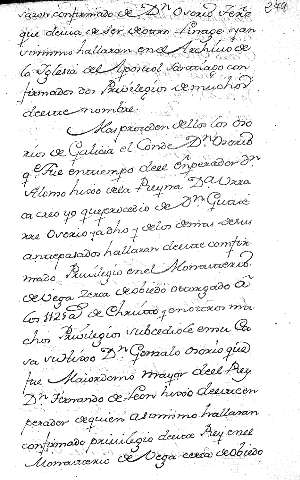 sazon confirmado de Dn. Osorio
que devia de ser de otro linage, y an
si mismo hallaran en el Archivo de
la Iglesia del Apostol Santiago con
firmados dos Privilegios de muchos
de este nombre.
Mas proceden de ellos los Oso
rios de Galicia el Conde Dn. Osorio
qe. fue en tiempo de el Emperador Dn.
Alonso hijo de la Reyna Da. Urra
ca creo yo que procedio de Dn.
Osorio ya dho y de los demas de sus
antepasados hallaran de este confir
mado Privilegio en el Monasterio
de Vega zerca de obiedo otorgado
los 1125 as. de Christo, y en otros mu
chos Privilegios subcediole en su Ca
sa su hijo Dn. Gonzalo Osorio que
fue Maiordomo mayor de el Rey
Dn. Fernando de Leon hijo de este em
perador de quien asimismo hallaran
confirmado privilegio de este Rey en el
Monasterio de Vega cerca de obiedo